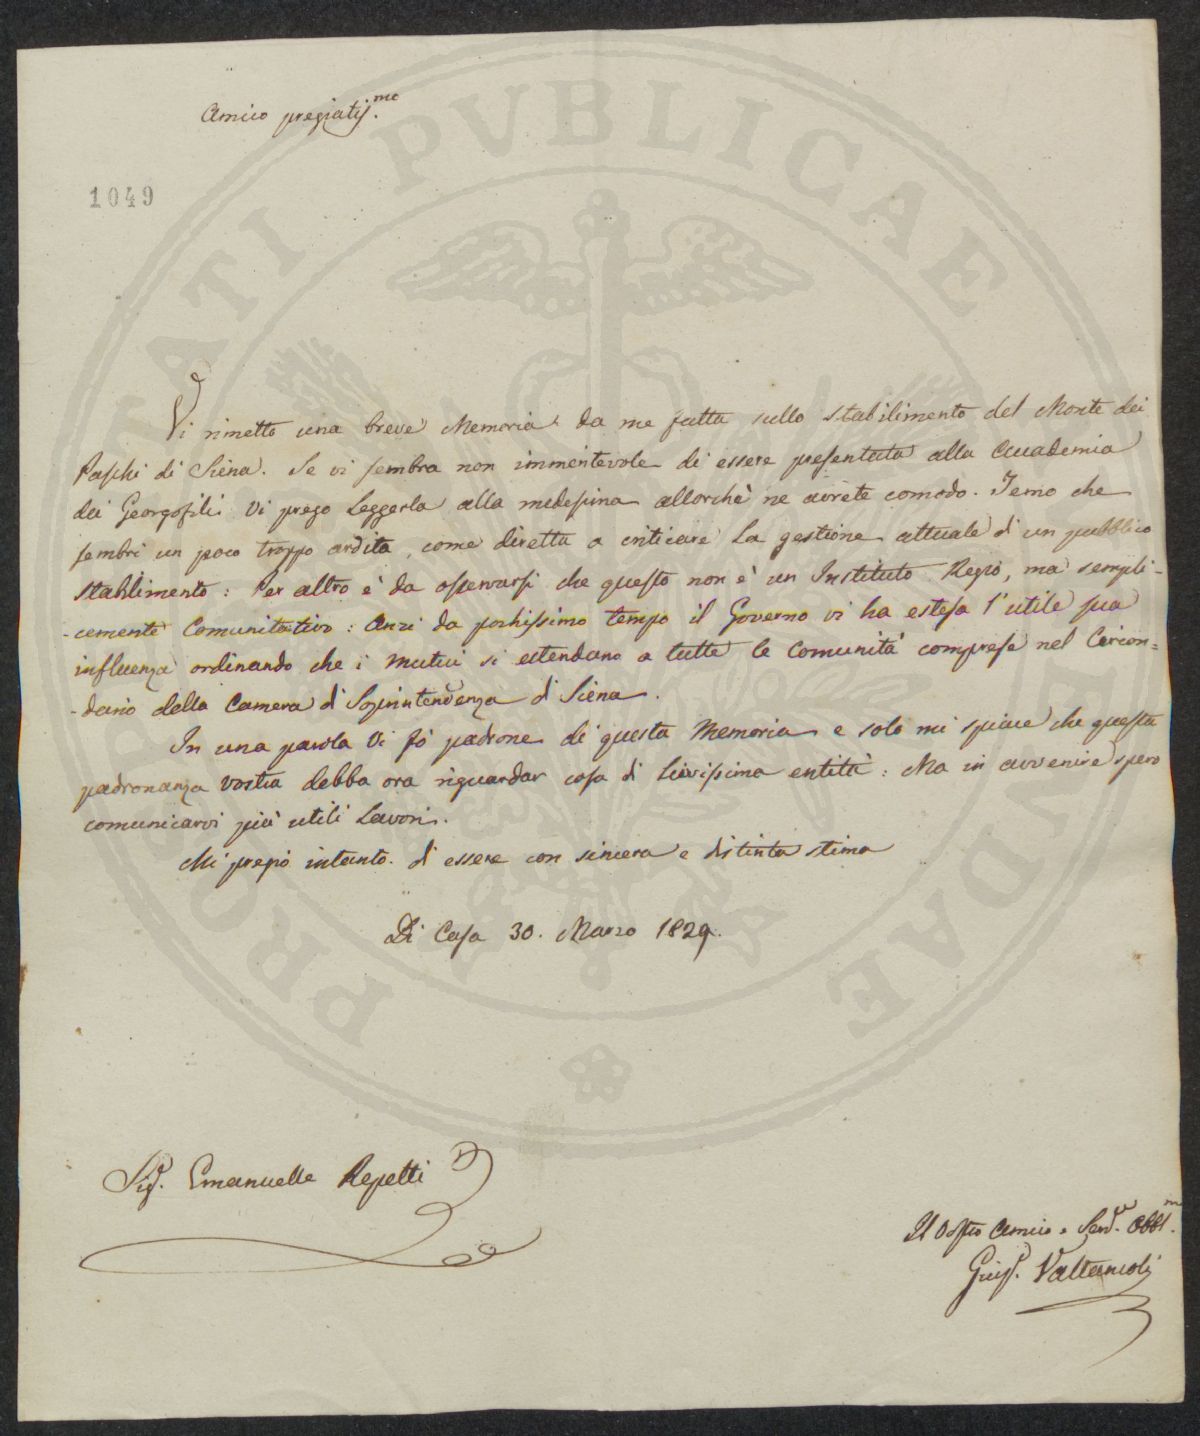 Amico pregiatis.mo
1049
Vi rimetto una breve Memoria da me fatta sullo stabilimento del Monte dei
Paschi di Siena. Se vi sembra non immeritevole di essere presentata alla Accademia
dei Georgofili vi prego Leggerla alla medesima allorchè ne avrete comodo. Temo che
sembri un poco troppo ardita, come diretta a criticare la gestione attuale di un pubblico
stabilimento: Per altro è da osservarsi che questo non è un Instituto Regio, ma sempli-
-cemente Comunitativo: Anzi da pochissimo tempo il Governo vi ha estesa l'utile sua
influenza ordinando che i mutui si estendano a tutte le Comunità comprese nel Circon=
-dario della Camera di Soprintendenza di Siena.
In una parola Vi fò padrone di questa Memoria e solo mi spiace che questa
padronanza vostra debba ora riguardar cosa di Lievissima entità: Ma in avvenire spero
comunicarvi più utili Lavori.
Mi pregio intanto di essere con sincera e distinta stima
Di Casa 30. Marzo 1829.
Sig. Emanuelle Repetti
Il Vostro Amico e Serv.re Obbl.mo
Giusp. Valtancoli
PROSPERITATI PVBLICAE AVGENDAE